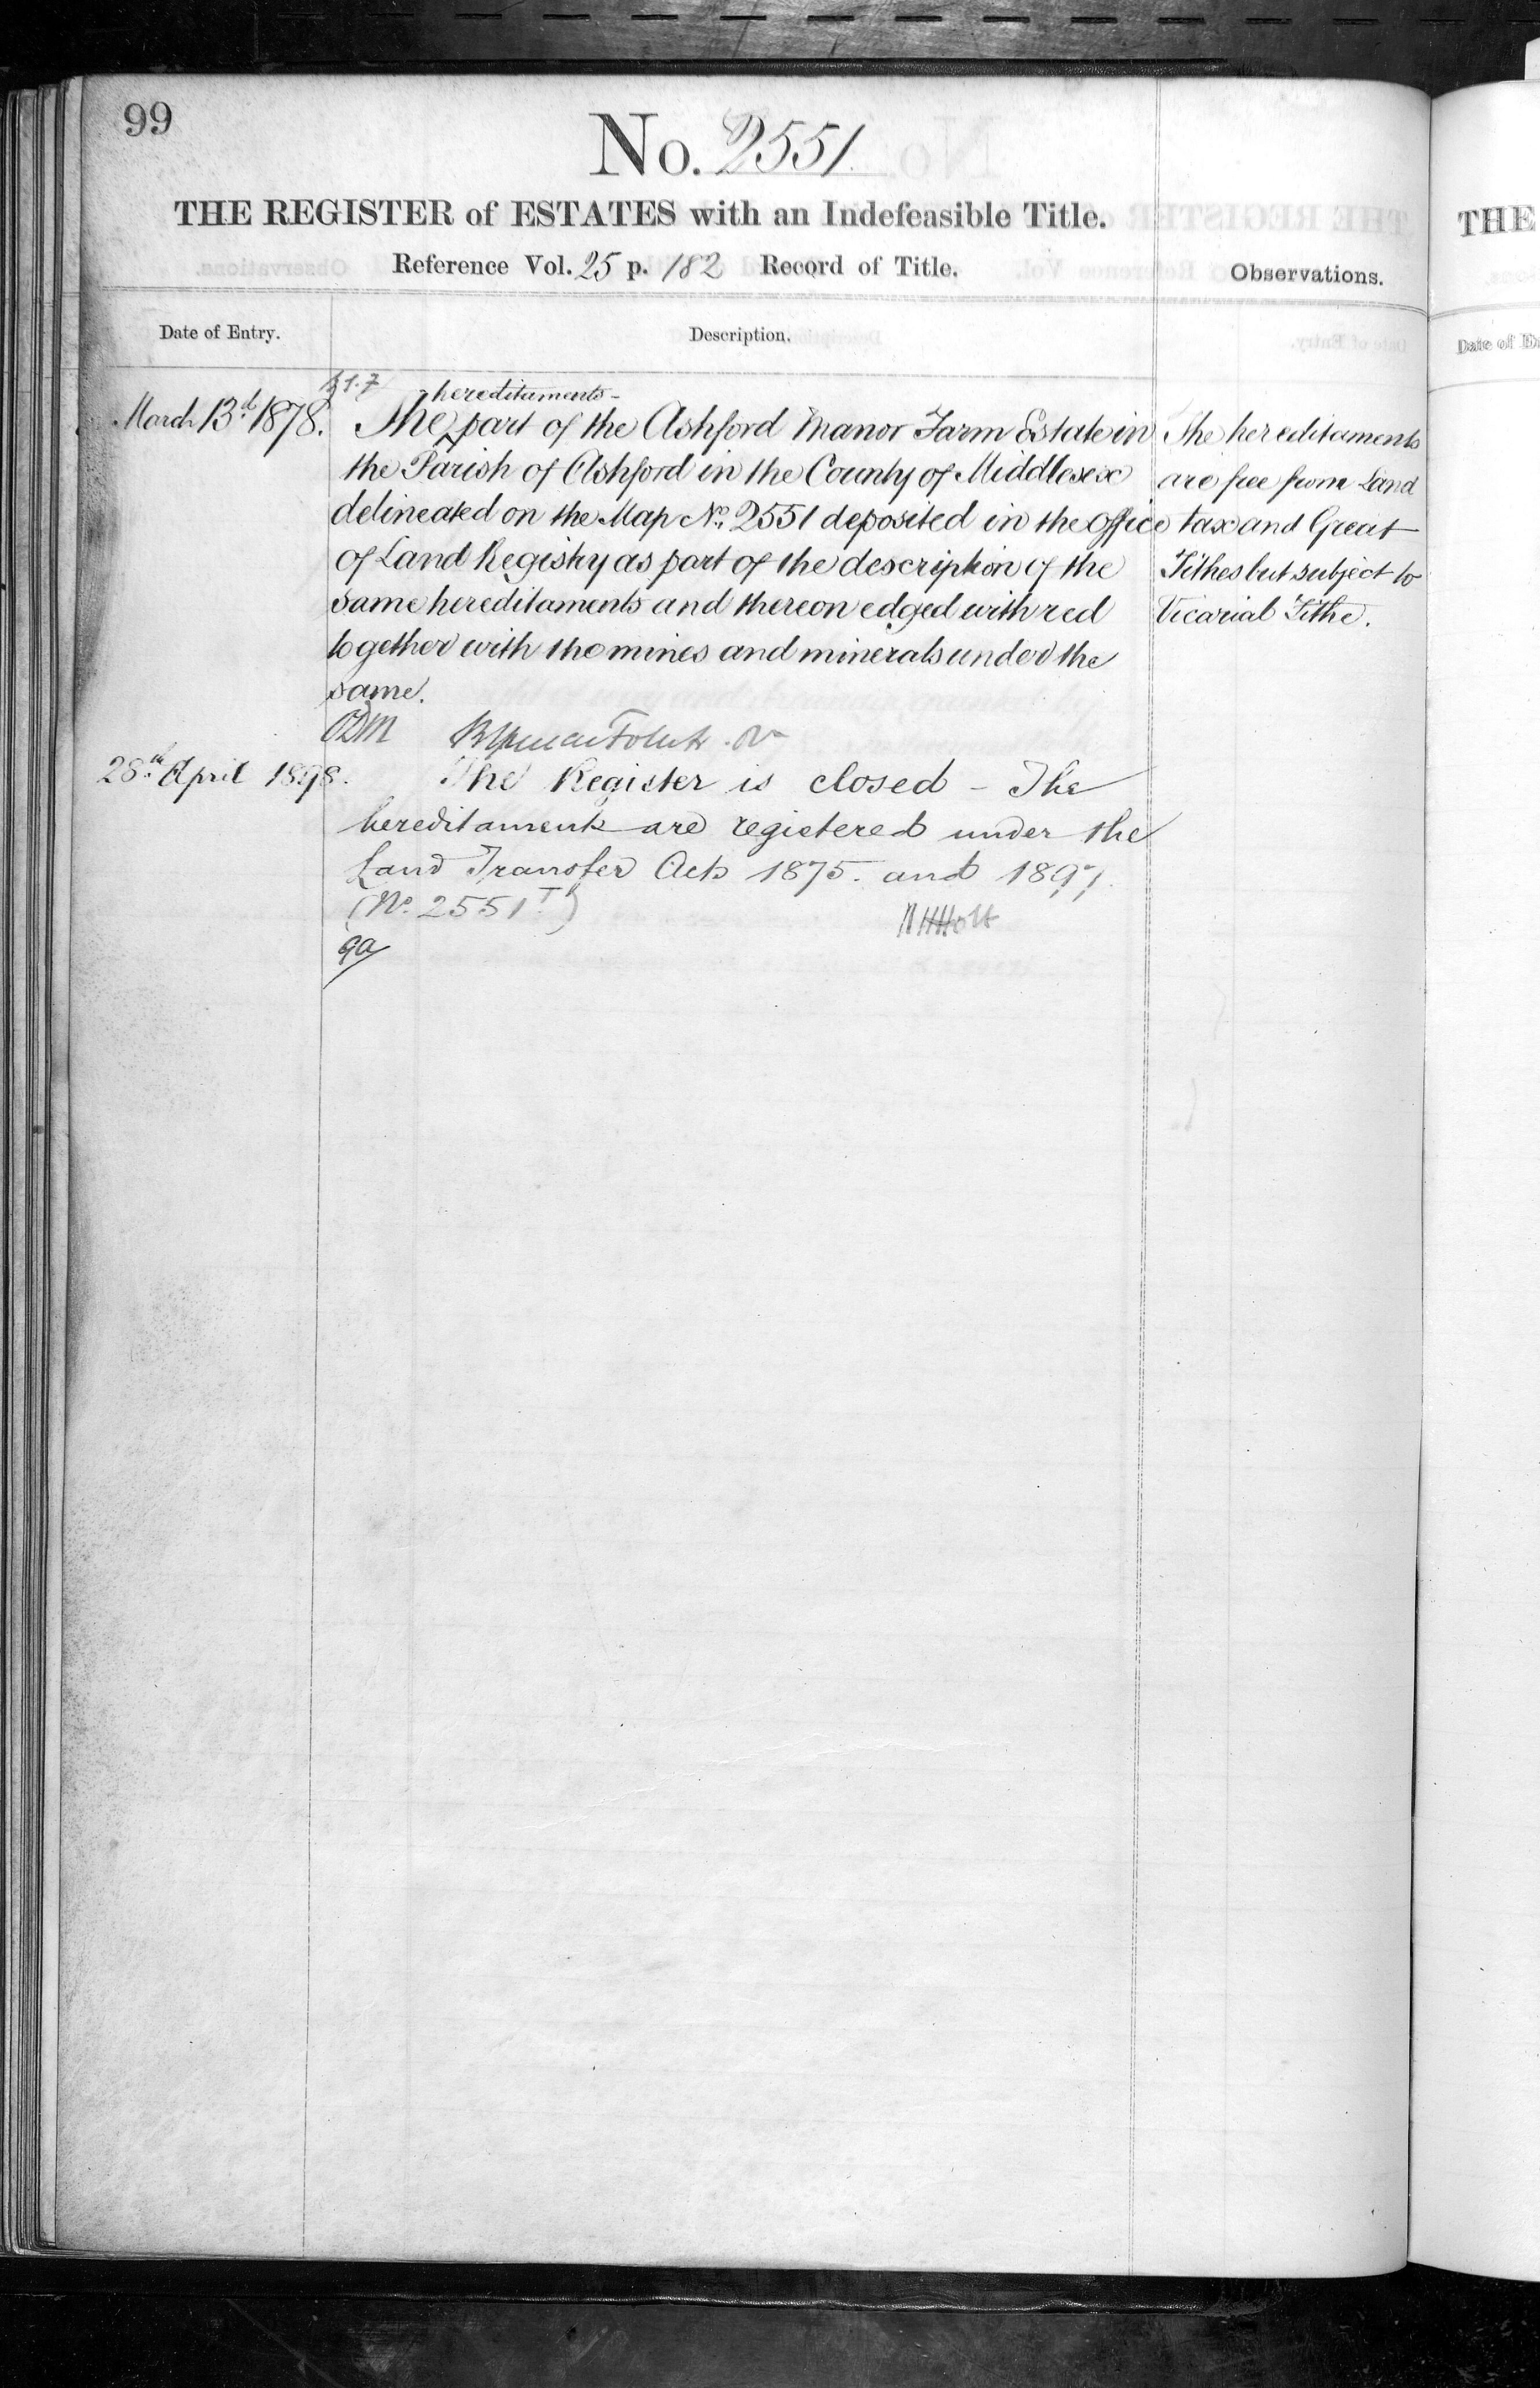 99
No. 2551.
THE REGISTER of ESTATES with an Indefeasible Title.
Reference Vol. 25 p. 182 Record of Title.
Observations.
Date of Entry.
Description.
March 13th 1878.
hereditaments
The ^ part of the Ashford Manor Farm Estate in
the Parish of Ashford in the County of Middlesex
delineated on the Map No. 2551 deposited in the office
of Land Registry as part of the description of the
same hereditaments and thereon edged with red
together with the mines and minerals under the
same.
The hereditaments
are free from Land
tax and Great
Tithes but subject to
Vicarial Tithe.
28th April 1898.
The Register is closed - The
hereditaments are registered under the
Land Transfer Acts 1875. and 1897.
(No. 2551 T.)
Holt
THE
Date of En